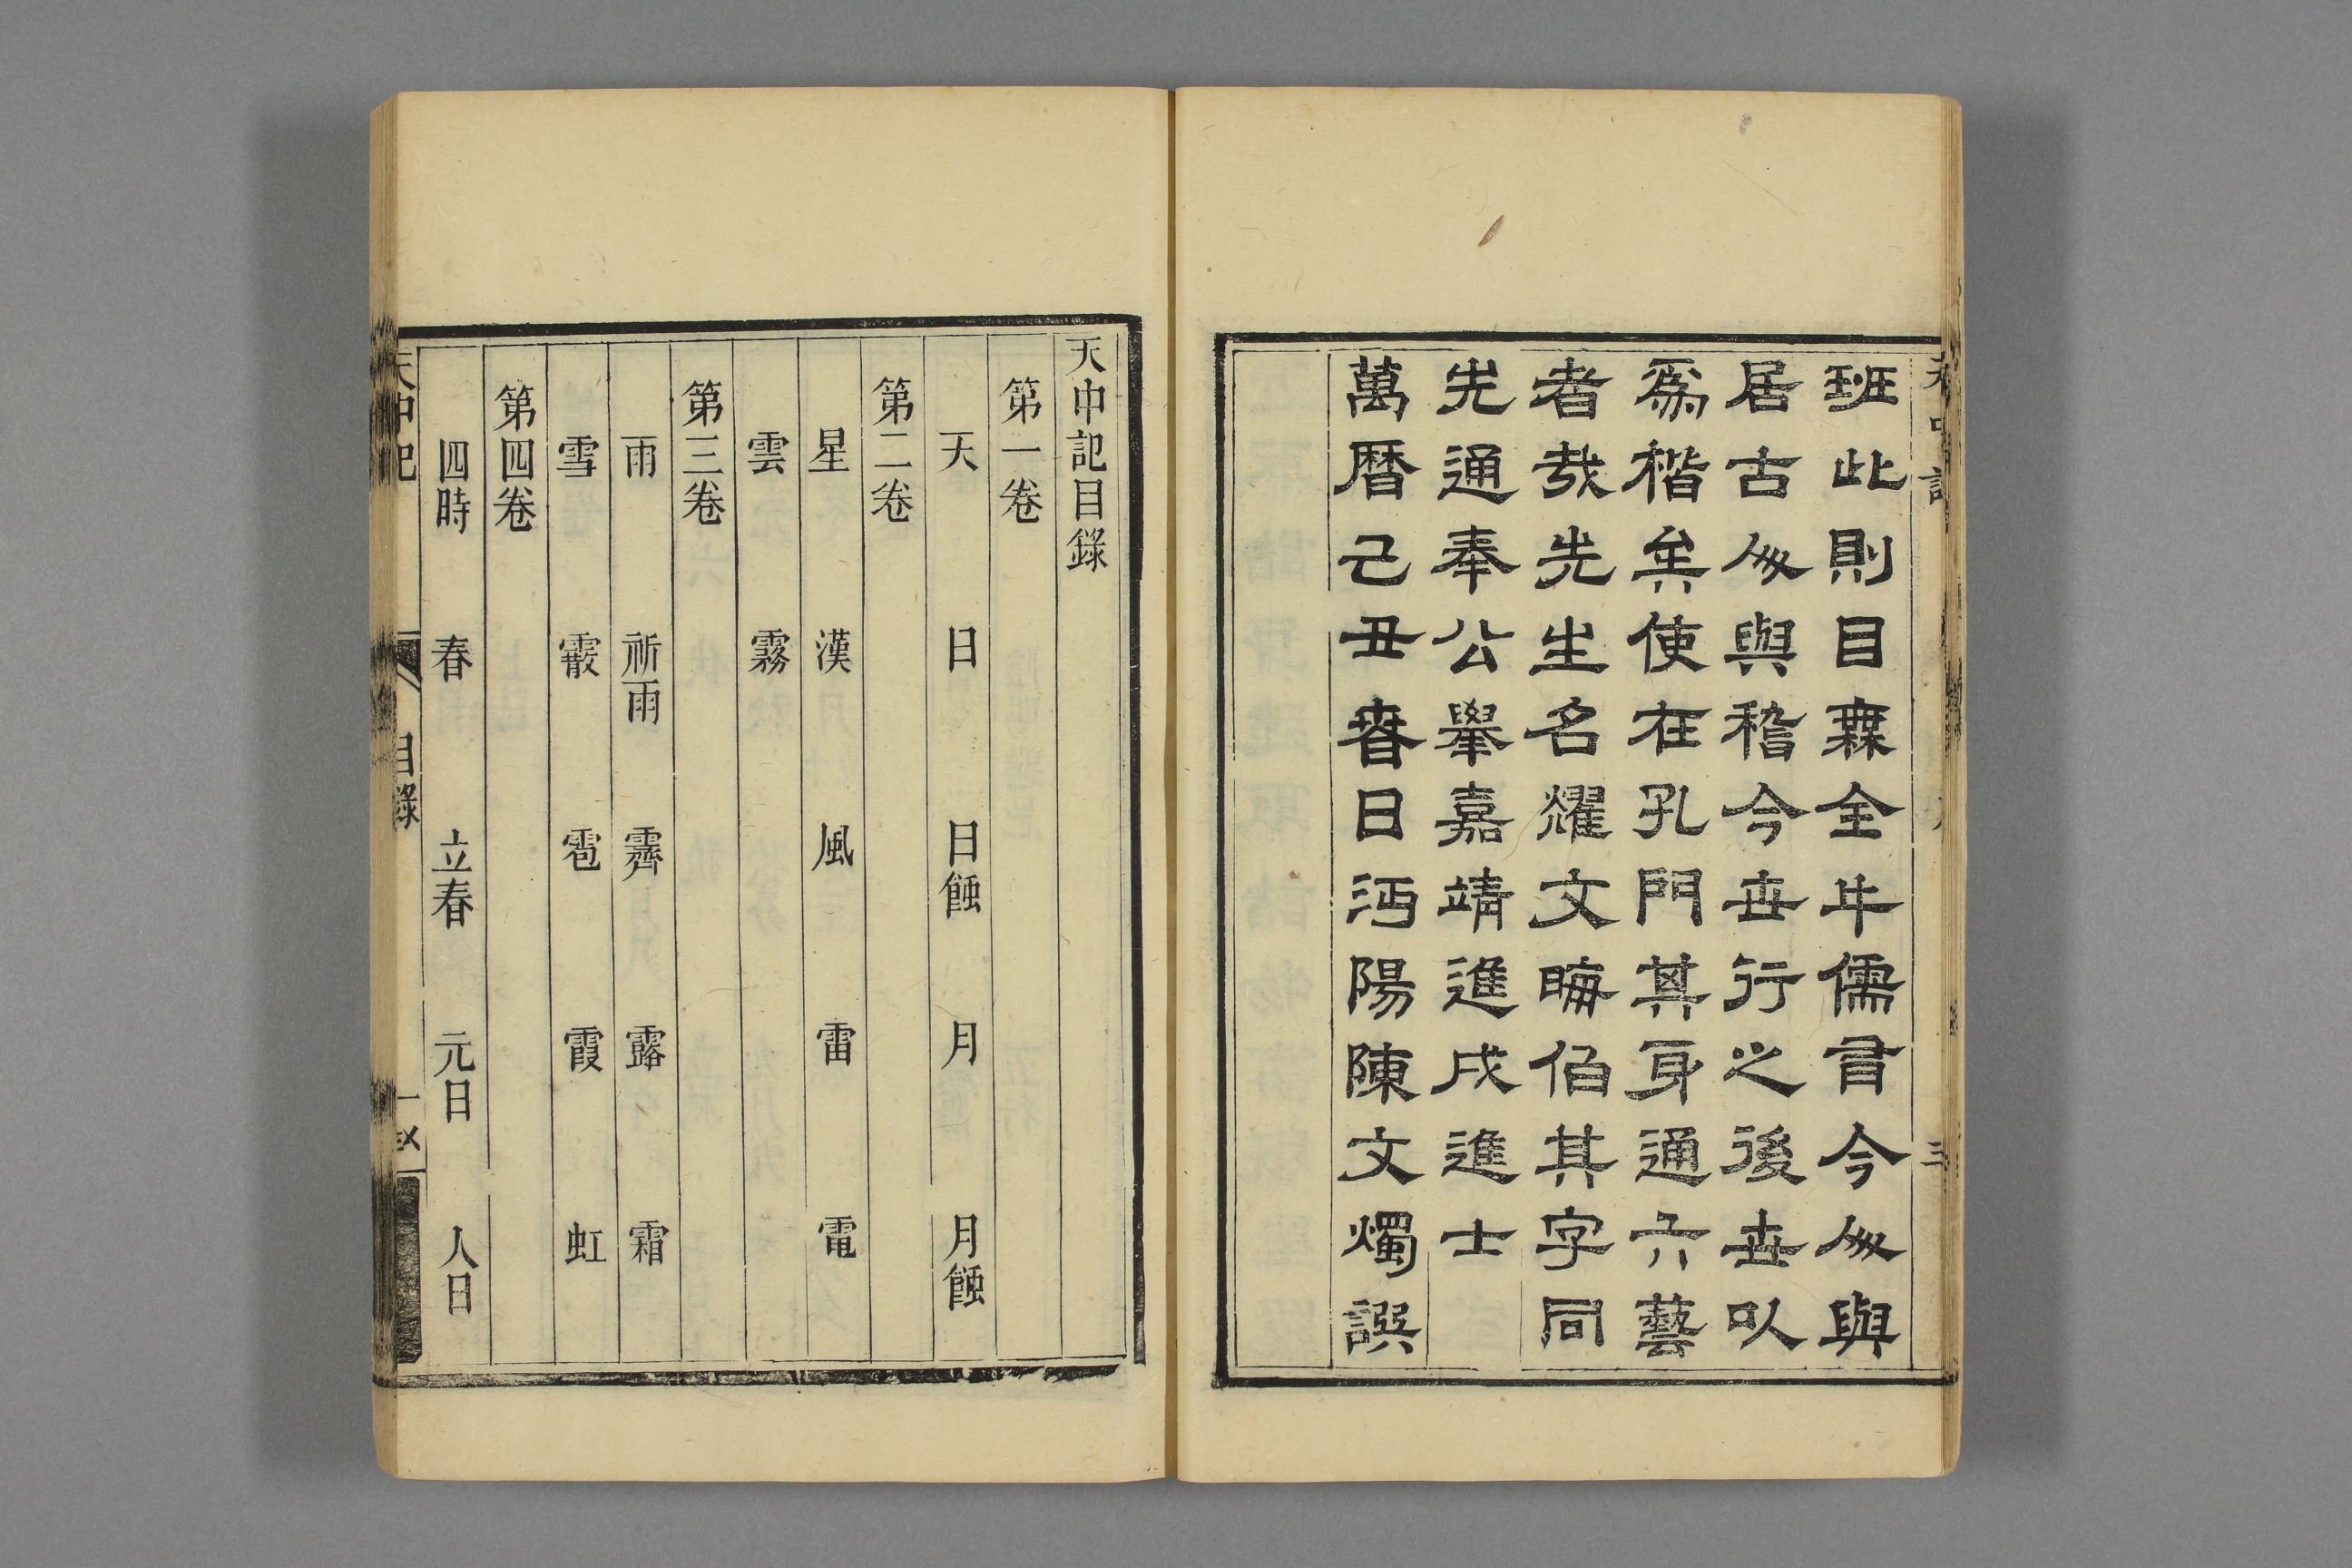 天中記 三
班此則目無全牛儒有今人與
居古人與稽今世行之後世以
爲楷矣使在孔門其身通六藝
者哉先生名耀文晦伯其字同
先通奉公舉嘉靖進戌進士
萬暦己丑春日沔陽陳文燭譔
天中記目錄
第一卷
天 日 日蝕 月 月蝕
第二卷
星 漢 風 雷 電
雲 霧
第三卷
雨 祈雨 霽 露 霜
雪 霰 雹 霞 虹
第四卷
四時 春 立春 元日 人日
天中記 目錄 一